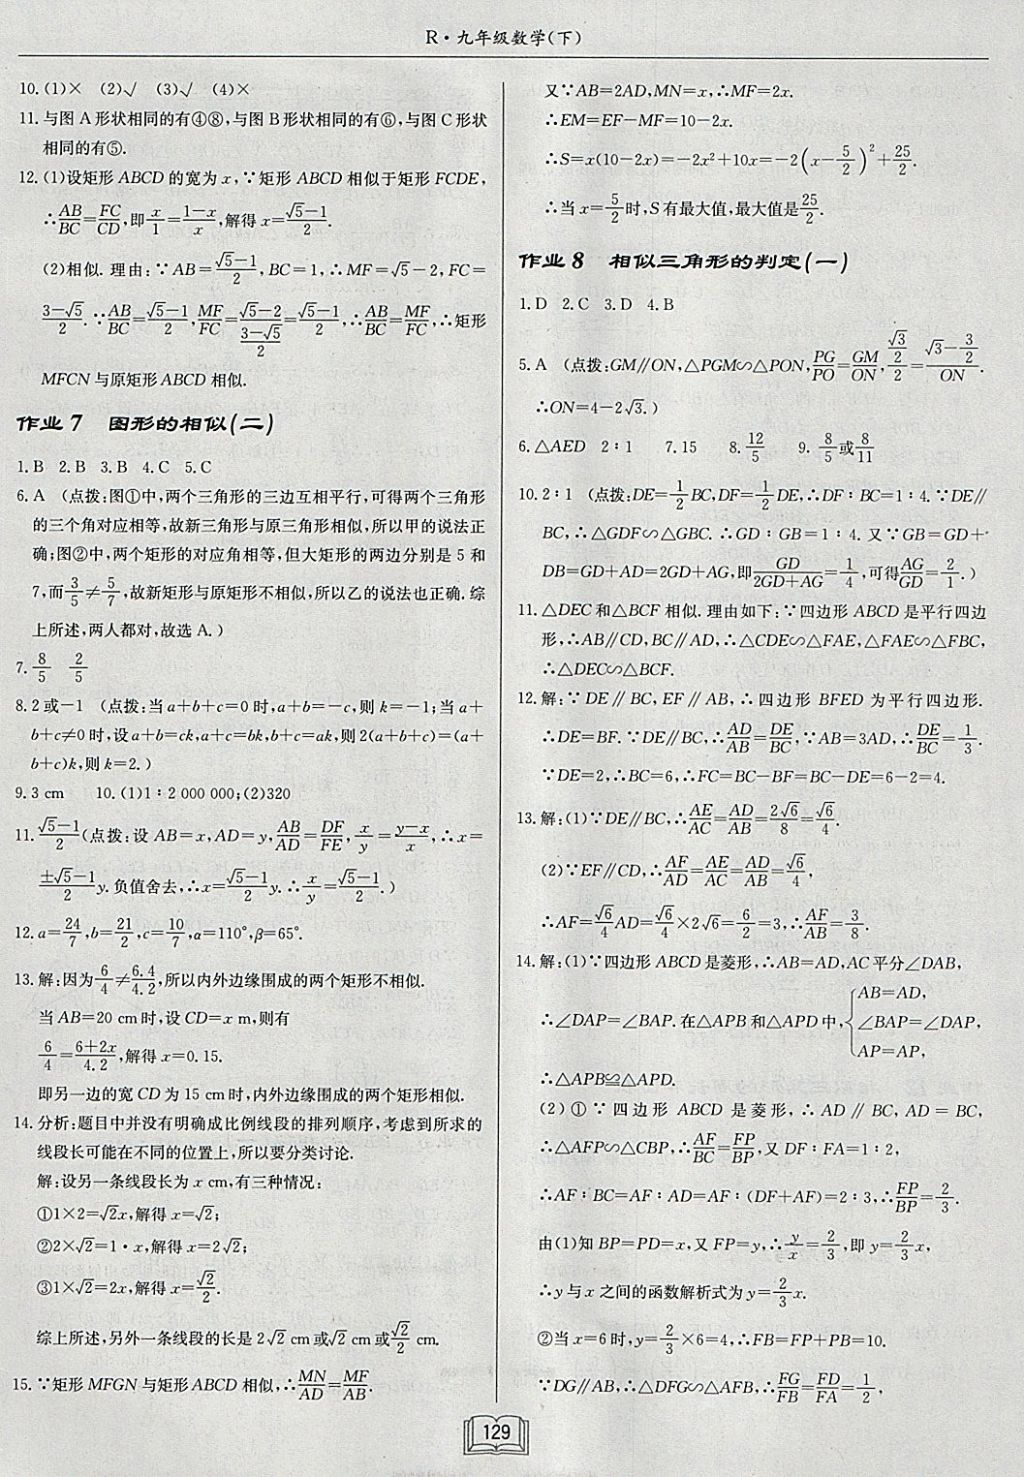 R·九年级数学(下)
10.(1)× (2)√ (3)√ (4)×
11.与图A形状相同的有④⑧,与图B形状相同的有⑥,与图C形状
相同的有⑤.
12.(1)设矩形ABCD的宽为x,∵矩形ABCD相似于矩形FCDE,
∴AB/BC=FC/CD,即x/1=(1-x)/x,解得x=(√5-1)/2.
(2)相似.理由:∵AB=(√5-1)/2,BC=1,∴MF=√5-2,FC=
(3-√5)/2.∵AB/BC=(√5-1)/2,MF/FC=(√5-2)/((3-√5)/2)=(√5-1)/2,∴AB/BC=MF/FC,∴矩形
MFCN与原矩形ABCD相似.
作业7 图形的相似(二)
1.B 2.B 3.B 4.C 5.C
6.A (点拨:图①中,两个三角形的三边互相平行,可得两个三角形
的三个角对应相等,故新三角形与原三角形相似,所以甲的说法正
确;图②中,两个矩形的对应角相等,但大矩形的两边分别是5和
7,而3/5≠5/7,故新矩形与原矩形不相似,所以乙的说法也正确.综
上所述,两人都对,故选A.)
7.8/5 2/5
8.2或-1 (点拨:当a+b+c=0时,a+b=-c,则k=-1;当a+
b+c≠0时,设a+b=ck,a+c=bk,b+c=ak,则2(a+b+c)=(a+
b+c)k,则k=2.)
9.3 cm 10.(1)1∶2 000 000;(2)320
11.(√5-1)/2(点拨:设AB=x,AD=y,AB/AD=DF/FE,x/y=(y-x)/x,∴x=
(±√5-1)/2 y.负值舍去,∴x=(√5-1)/2 y.∴x/y=(√5-1)/2.)
12.a=24/7,b=21/2,c=10/7,α=110°,β=65°.
13.解:因为6/4≠6.4/4.2,所以内外边缘围成的两个矩形不相似.
当AB=20 cm时,设CD=x m,则有
6/4=(6+2x)/4.2,解得x=0.15.
即另一边的宽CD为15 cm时,内外边缘围成的两个矩形相似.
14.分析:题目中并没有明确成比例线段的排列顺序,考虑到所求的
线段长可能在不同的位置上,所以要分类讨论.
解:设另一条线段长为x cm,有三种情况:
①1×2=√2x,解得x=√2;
②2×√2=1·x,解得x=2√2;
③1×√2=2x,解得x=√2/2.
综上所述,另外一条线段的长是2√2 cm或√2 cm或√2/2 cm.
15.∵矩形MFGN与矩形ABCD相似,∴MN/AD=MF/AB.
又∵AB=2AD,MN=x,∴MF=2x.
∴EM=EF-MF=10-2x.
∴S=x(10-2x)=-2x²+10x=-2(x-5/2)²+25/2.
∴当x=5/2时,S有最大值,最大值是25/2.
作业8 相似三角形的判定(一)
1.D 2.C 3.D 4.B
5.A (点拨:GM∥ON,△PGM∽△PON,PG/PO=GM/ON,(√3/2)/2=(√3-3/2)/ON.
∴ON=4-2√3.)
6.△AED 2∶1 7.15 8.12/5 9.8/5或8/11
10.2∶1 (点拨:DE=1/2BC,DF=1/2DE,∴DF∶BC=1∶4.∵DE∥
BC,∴△GDF∽△GBC.∴GD∶GB=1∶4.又∵GB=GD+
DB=GD+AD=2GD+AG,即GD/(2GD+AG)=1/4,可得AG/GD=2/1.)
11.△DEC和△BCF相似.理由如下:∵四边形ABCD是平行四边
形,∴AB∥CD,BC∥AD,∴△CDE∽△FAE,△FAE∽△FBC,
∴△DEC∽△BCF.
12.解:∵DE∥BC,EF∥AB,∴四边形BFED为平行四边形.
∴DE=BF.∵DE∥BC,∴AD/AB=DE/BC,∵AB=3AD,∴DE/BC=1/3.
∵DE=2,∴BC=6,∴FC=BC-BF=BC-DE=6-2=4.
13.解:(1)∵DE∥BC,∴AE/AC=AD/AB=2√6/8=√6/4.
(2)∵EF∥CD,∴AF/AD=AE/AC=AD/AB=√6/4,
∴AF=√6/4AD=√6/4×2√6=6/2=3,∴AF/AB=3/8.
14.解:(1)∵四边形ABCD是菱形,∴AB=AD,AC平分∠DAB,
∴∠DAP=∠BAP.在△APB和△APD中,{AB=AD,
∠BAP=∠DAP,
AP=AP,
∴△APB≌△APD.
(2)①∵四边形ABCD是菱形,∴AD∥BC,AD=BC,
∴△AFP∽△CBP,∴AF/BC=FP/BP,又DF∶FA=1∶2,
∴AF∶BC=AF∶AD=AF∶(DF+AF)=2∶3,∴FP/BP=2/3.
由(1)知BP=PD=x,又FP=y,∴y/x=2/3,即y=2/3x,
∴y与x之间的函数解析式为y=2/3x.
②当x=6时,y=2/3×6=4,∴FB=FP+PB=10.
∵DG∥AB,∴△DFG∽△AFB,∴FG/FB=FD/FA=1/2,
129